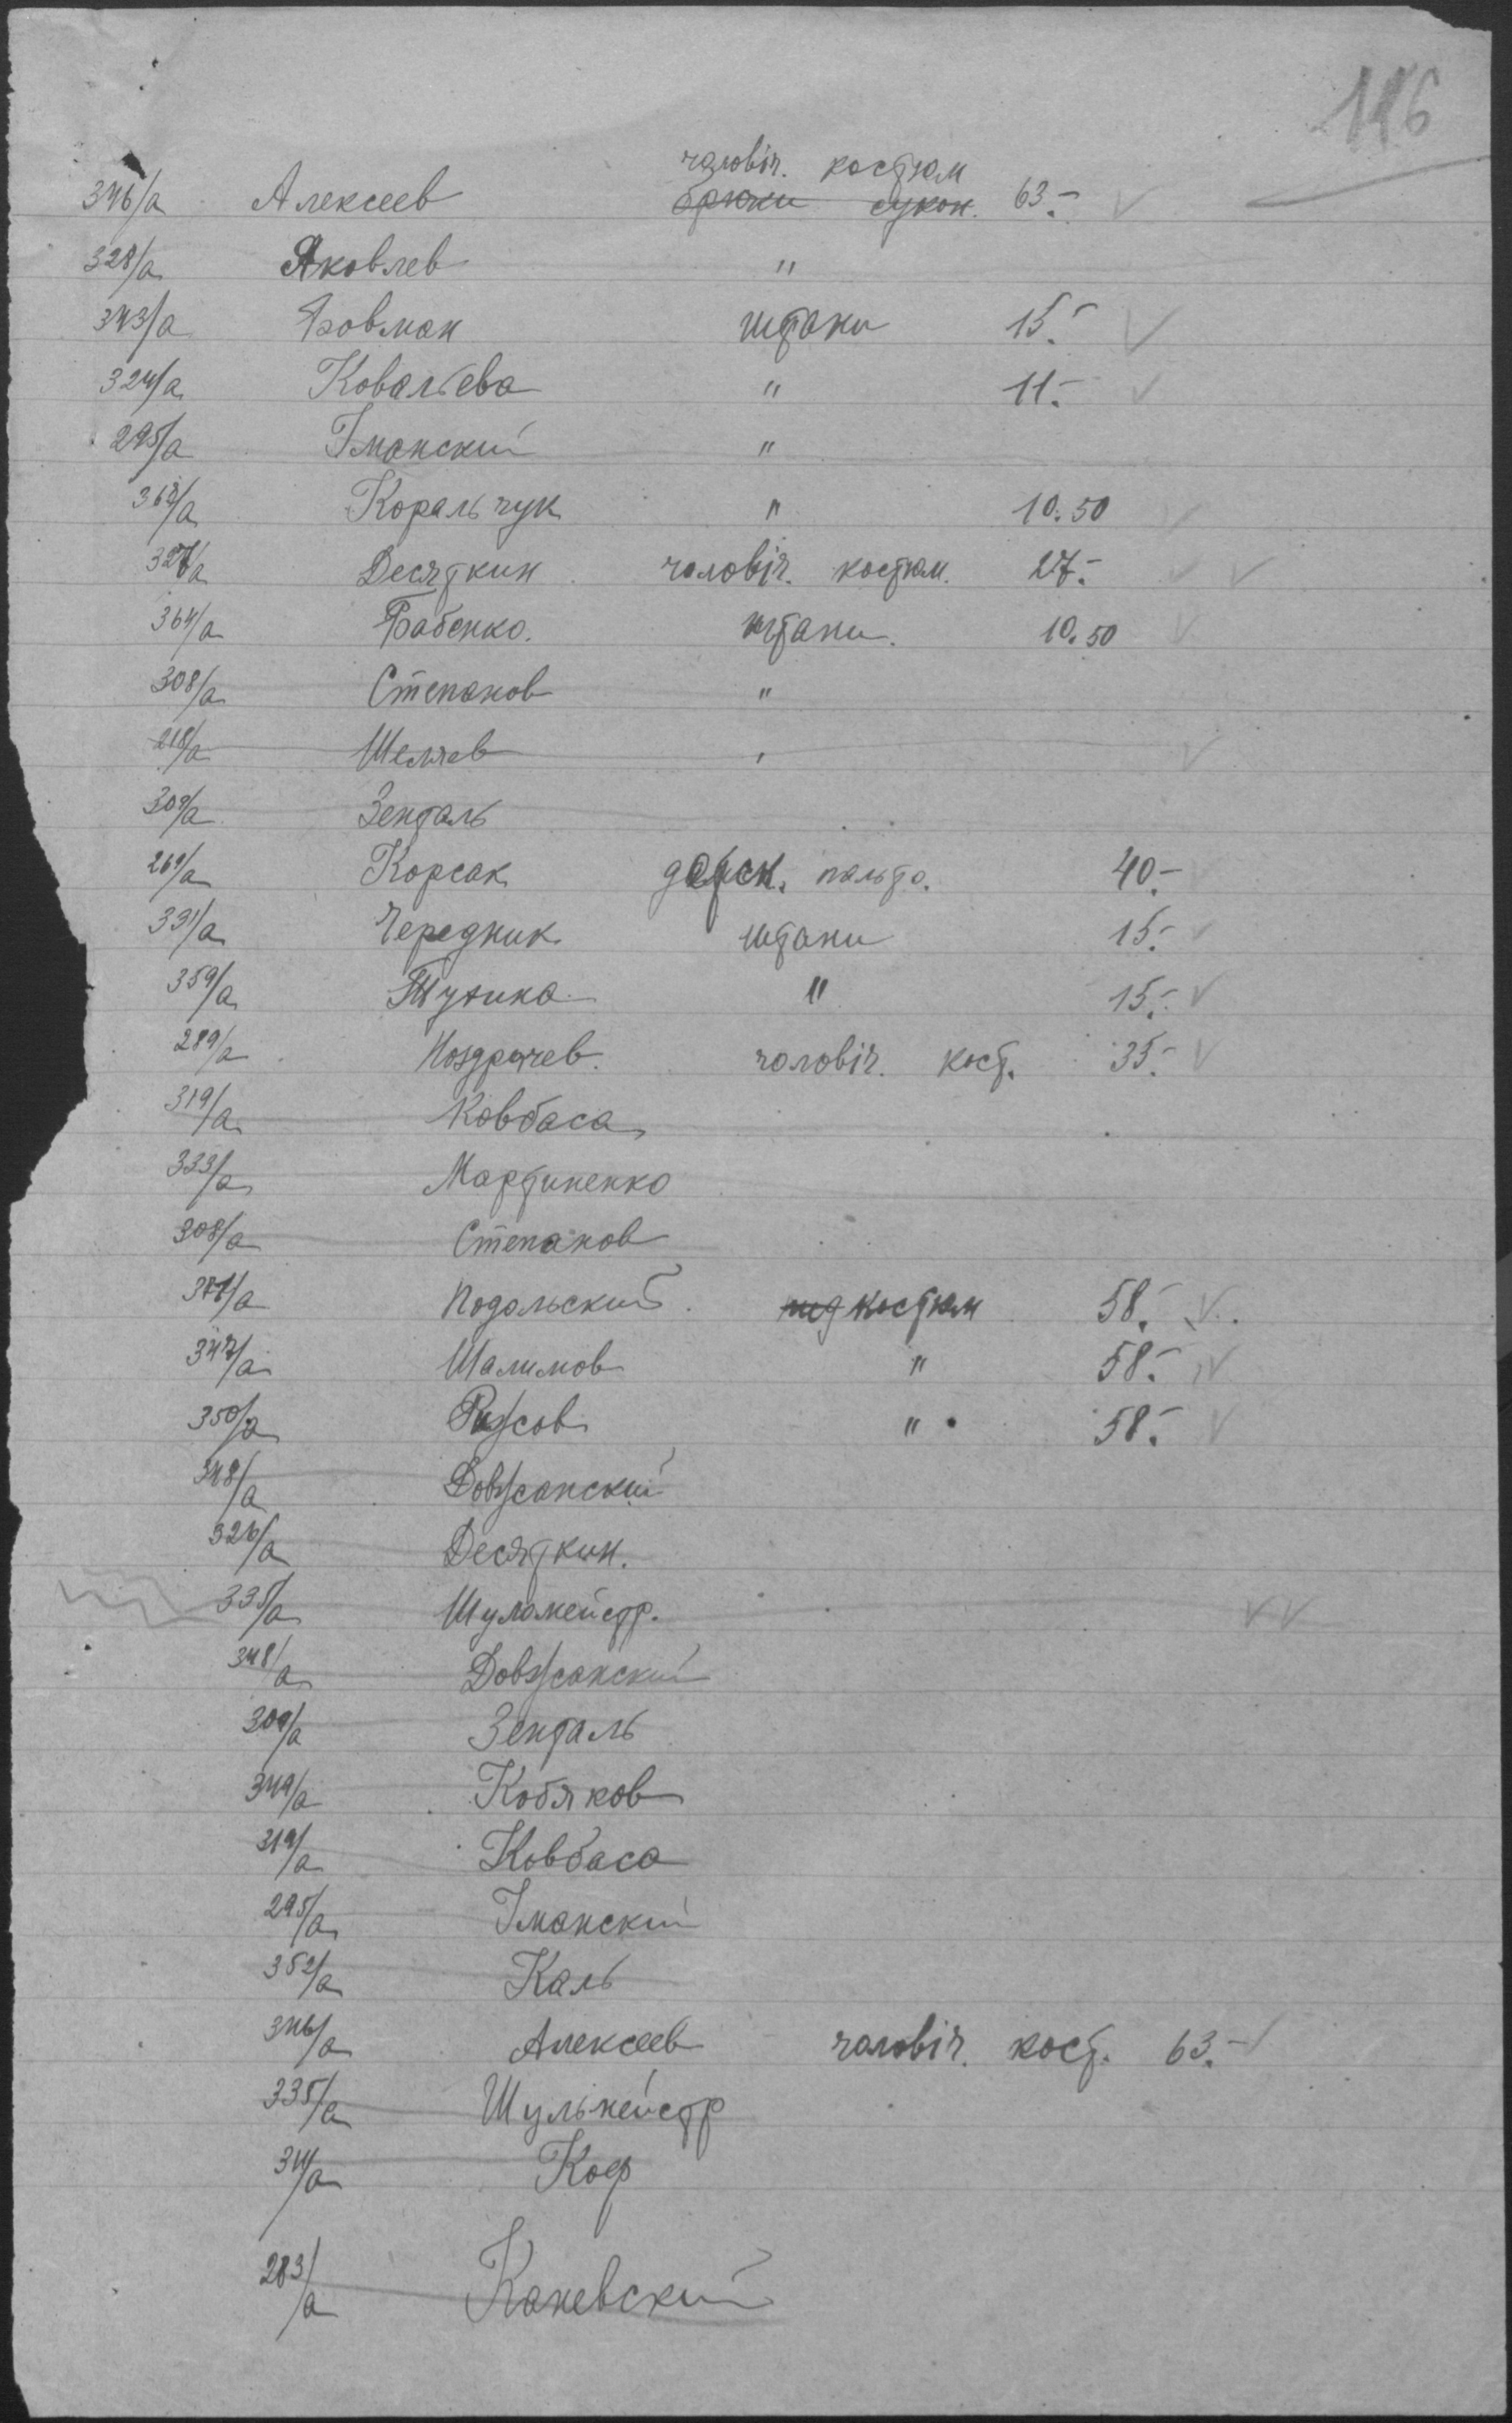 116
чоловіч. костюм
346/а Алексеев брюки сукон. 63.-
328/а Яковлев "
343/а Бовман штани 15.-
324/а Ковалъева " 11.-
295/а Іманский "
362/а Коральчук " 10.50
327/а Десяткин чоловіч. костюм. 27.-
364/а Бабенко. штани. 10.50
308/а Степанов "
218/а Шеляев "
309/а Зенталь
269/а Корсак дамск. пальто. 40.-
331/а Чередник штани 15.-
359/а " 15.-
289/а Ноздрачев. чоловіч. кост. 35.-
319/а Ковбаса
333/а Мартиненко
308/а Степанов
Подольский. костюм 58.-
347/а Шалимов " 58.-
350/а " 58.-
348/а Довжанский
326/а Десяткин.
335/а Шулмейстр.
348/а Довжанский
309/а Зенталь
349/а Кобяков
319/а Ковбаса
295/а Іманский
352/а Каль
346/а Алексеев чоловіч. кост. 63.-
335/а Шульмейстр
Коф
283/а Каневский